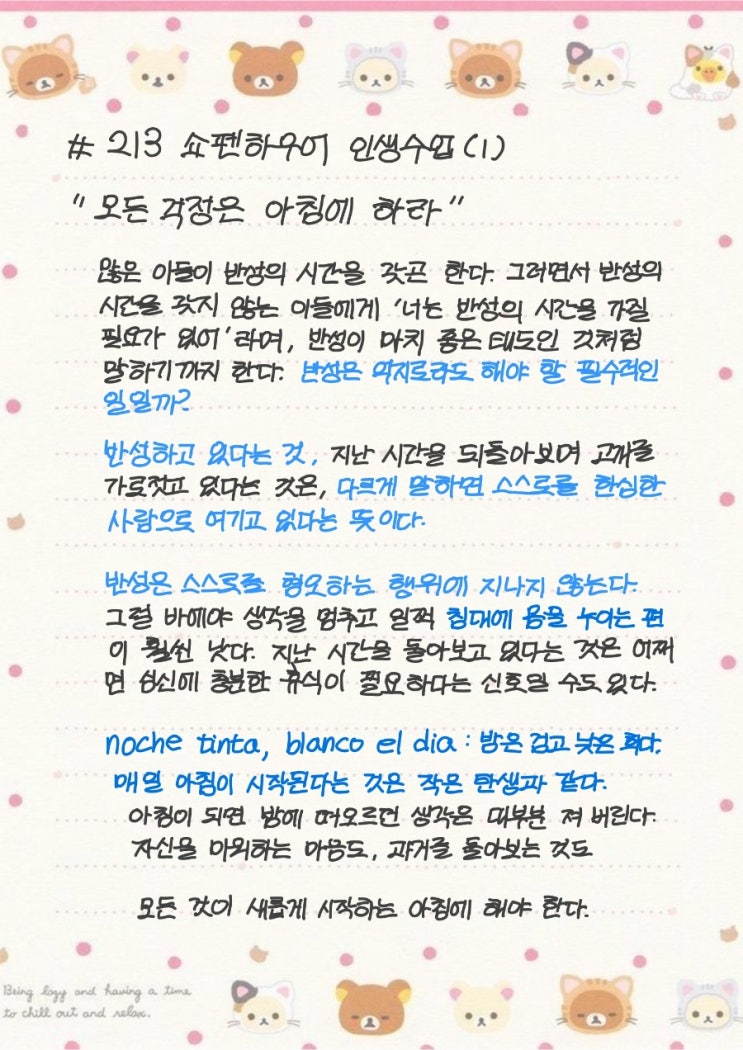 # 213 쇼펜하우어 인생수업 (1)
" 모든 걱정은 아침에 하라 "
많은 이들이 반성의 시간을 갖곤 한다. 그러면서 반성의
시간을 갖지 않는 이들에게 '너는 반성의 시간을 가질
필요가 있어' 라며, 반성이 마치 좋은 태도인 것처럼
말하기까지 한다. 반성은 억지로라도 해야 할 필수적인
일일까?
반성하고 있다는 것, 지난 시간을 되돌아보며 고개를
가로젓고 있다는 것은, 다르게 말하면 스스로를 한심한
사람으로 여기고 있다는 뜻이다.
반성은 스스로를 혐오하는 행위에 지나지 않는다.
그럴 바에야 생각을 멈추고 일찍 침대에 몸을 누이는 편
이 훨씬 낫다. 지난 시간을 돌아보고 있다는 것은 어쩌
면 심신에 충분한 휴식이 필요하다는 신호일 수도 있다.
noche tinta, blanco el dia : 밤은 검고 낮은 희다.
매일 아침이 시작된다는 것은 작은 탄생과 같다.
아침이 되면 밤에 떠오르던 생각은 대부분 져 버린다.
자신을 미워하는 마음도, 과거를 돌아보는 것도
모든 것이 새롭게 시작하는 아침에 해야 한다.
Being lazy and having a time
to chill out and relax.